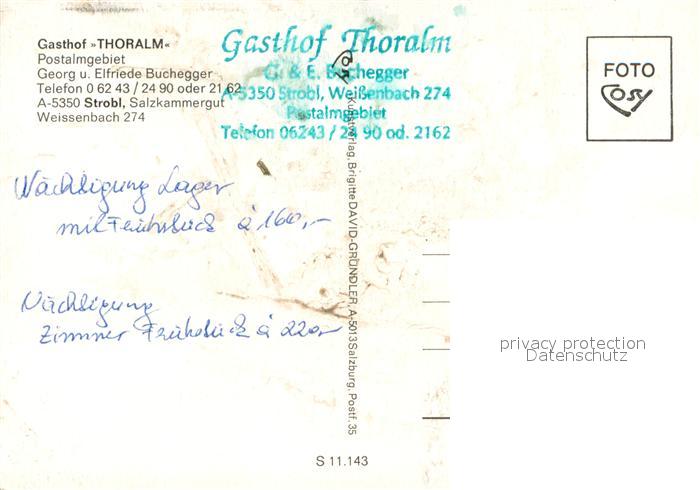 Gasthof »THORALM«
Postalmgebiet
Georg u. Elfriede Buchegger
Telefon 0 62 43 / 24 90 oder 21 62
A-5350 Strobl, Salzkammergut
Weissenbach 274
Gasthof Thoralm
G. & E. Buchegger
A-5350 Strobl, Weißenbach 274
Postalmgebiet
Telefon 06243 / 24 90 od. 2162
FOTO
Cosy
Nächtigung Lager
mit Frühstück à 160,-
Nächtigung
Zimmer Frühstück à 220,-
Kunstverlag Brigitte DAVID-GRÜNDLER, A-5013 Salzburg, Postf. 35
privacy protection
Datenschutz
S 11.143